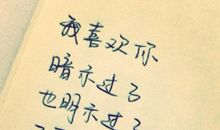 我喜欢你
暗示过了
也明示过了